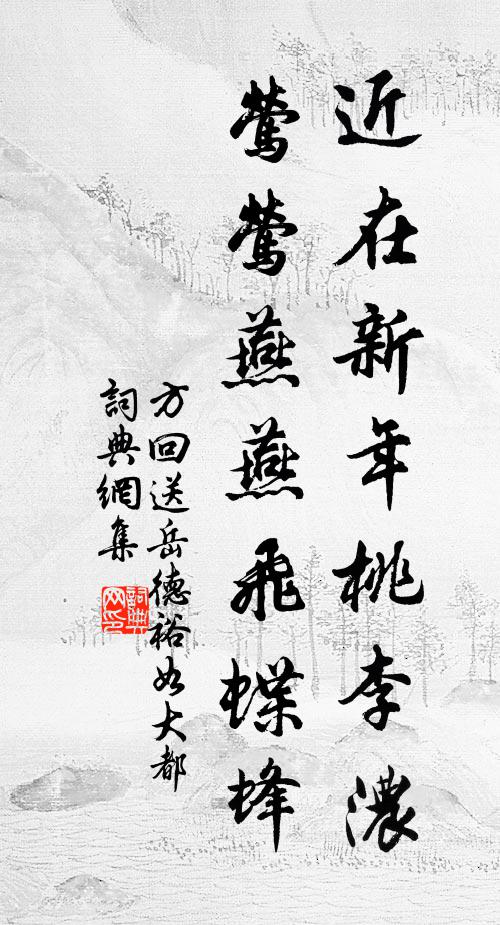 近在新年桃李濃
鶯鶯燕燕飛蝶蜂
方回送岳德裕如大都
詞典網集
詞典網印